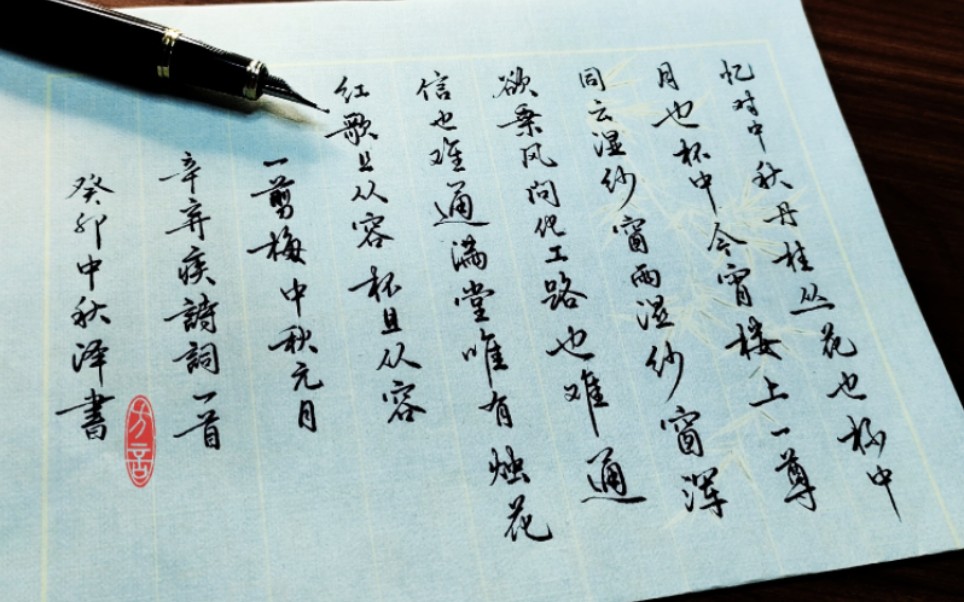 忆对中秋丹桂丛花也杯中
月也杯中今宵楼上一尊
同云湿纱窗雨湿纱窗浑
欲乘风问化工路也难通
信也难通满堂唯有烛花
红歌且从容杯且从容
一剪梅中秋元月
辛弃疾詩詞一首
癸卯中秋泽書